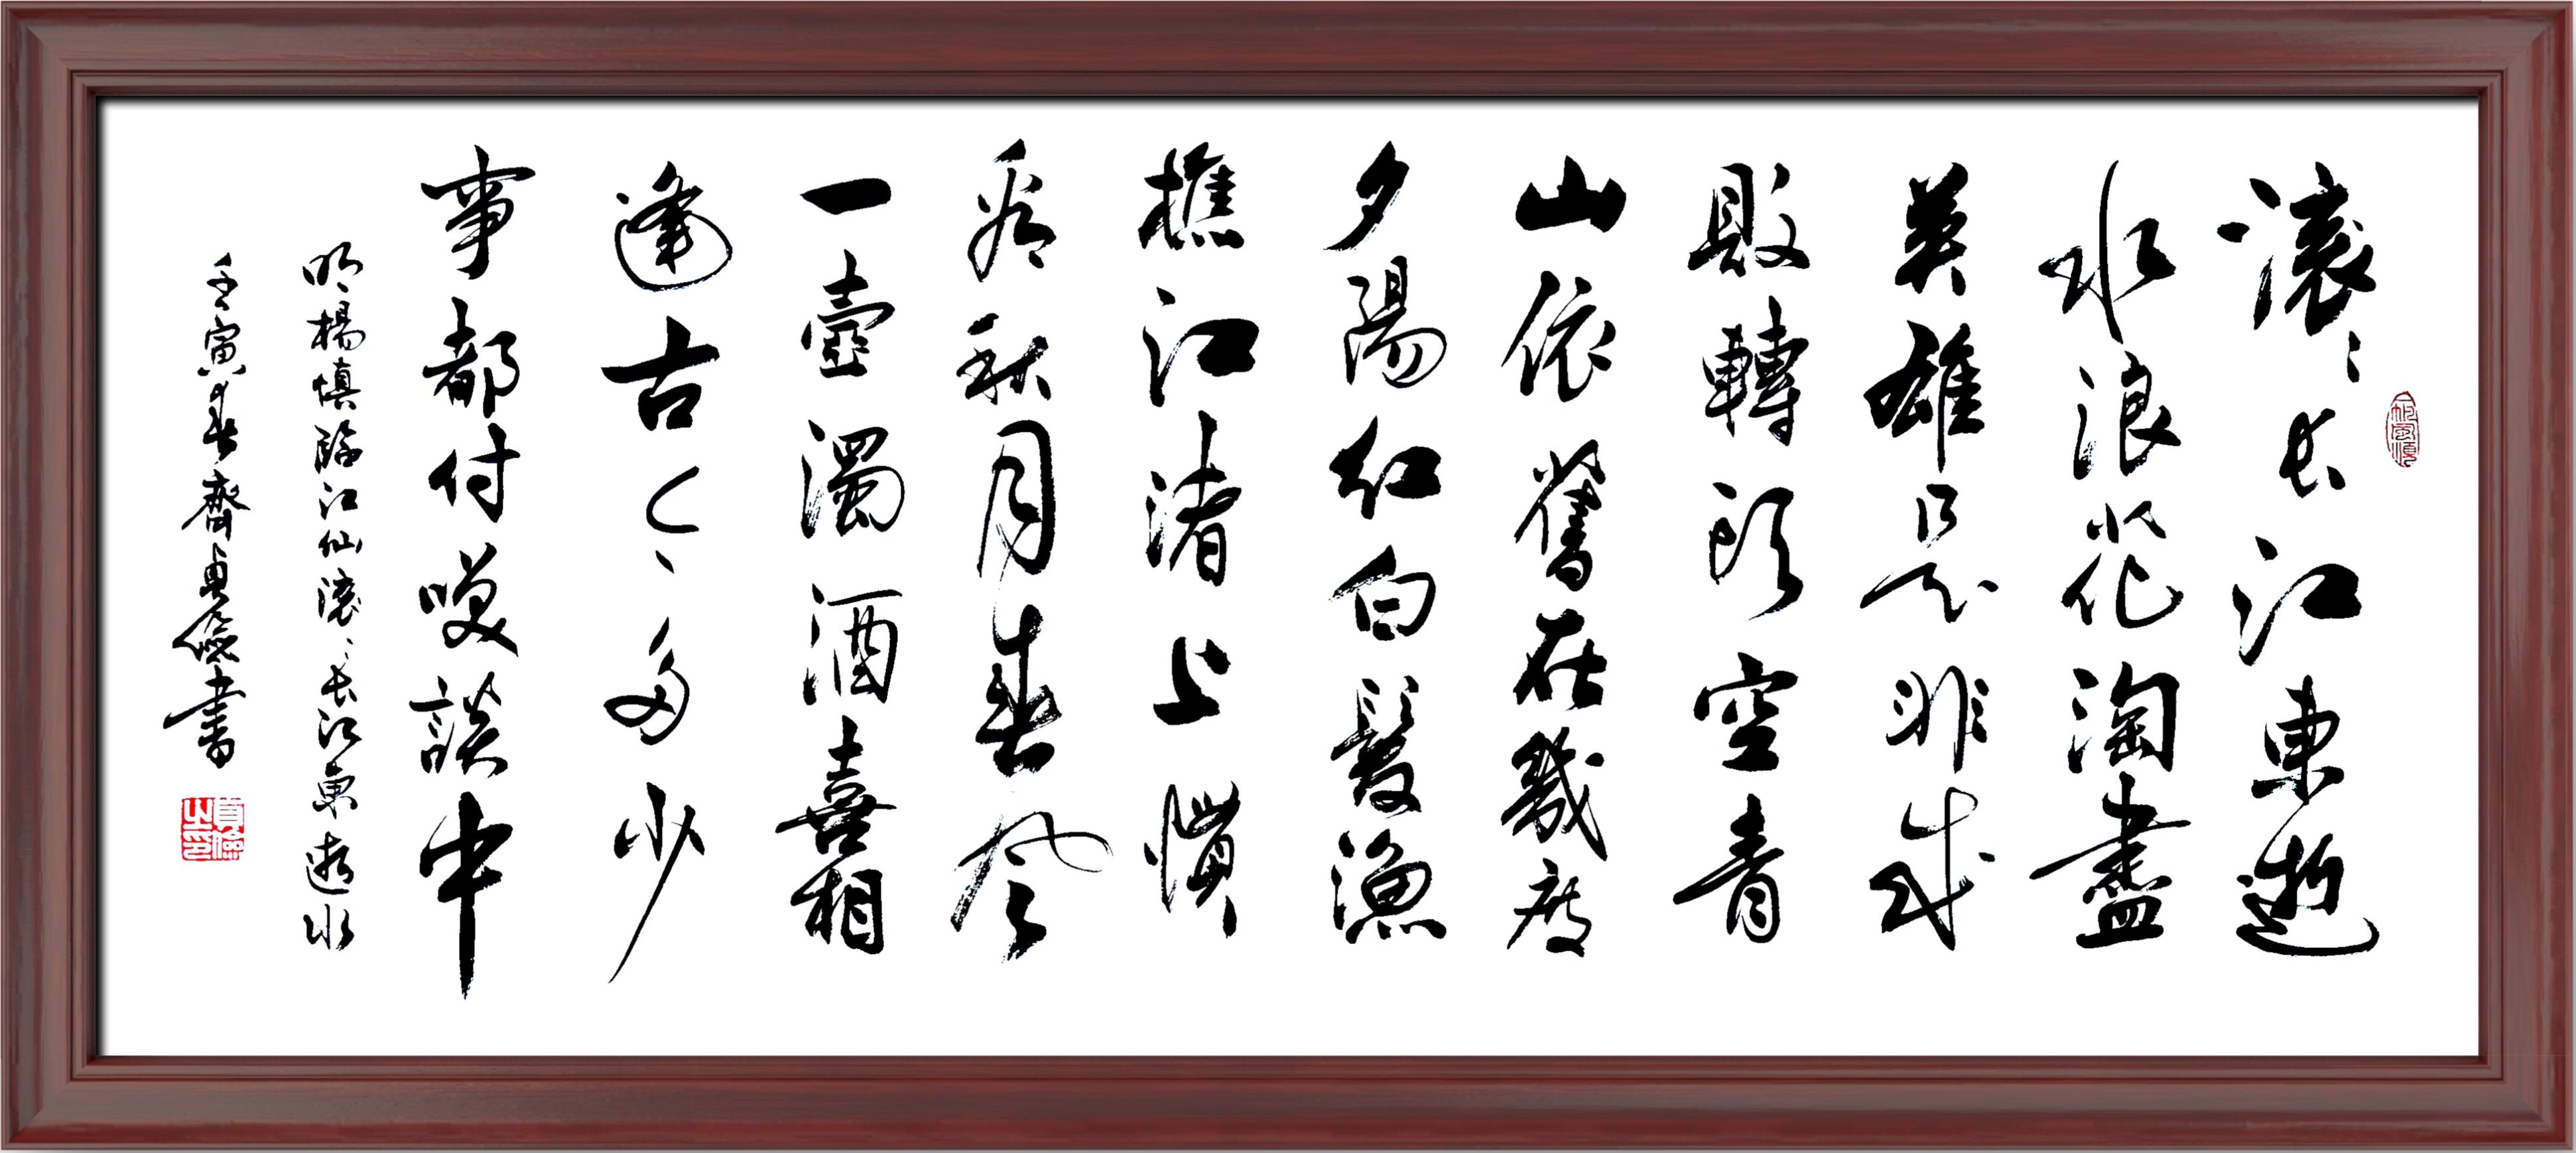 一帆風順
滾々長江東逝
水浪花淘盡
英雄是非成
敗轉頭空青
山依舊在幾度
夕陽紅白髮漁
樵江渚上慣
看秋月春風
一壺濁酒喜相
逢古今多少
事都付笑談中
明楊慎臨江仙滾々長江東逝水
壬寅春齊貞儉書
貞儉之印